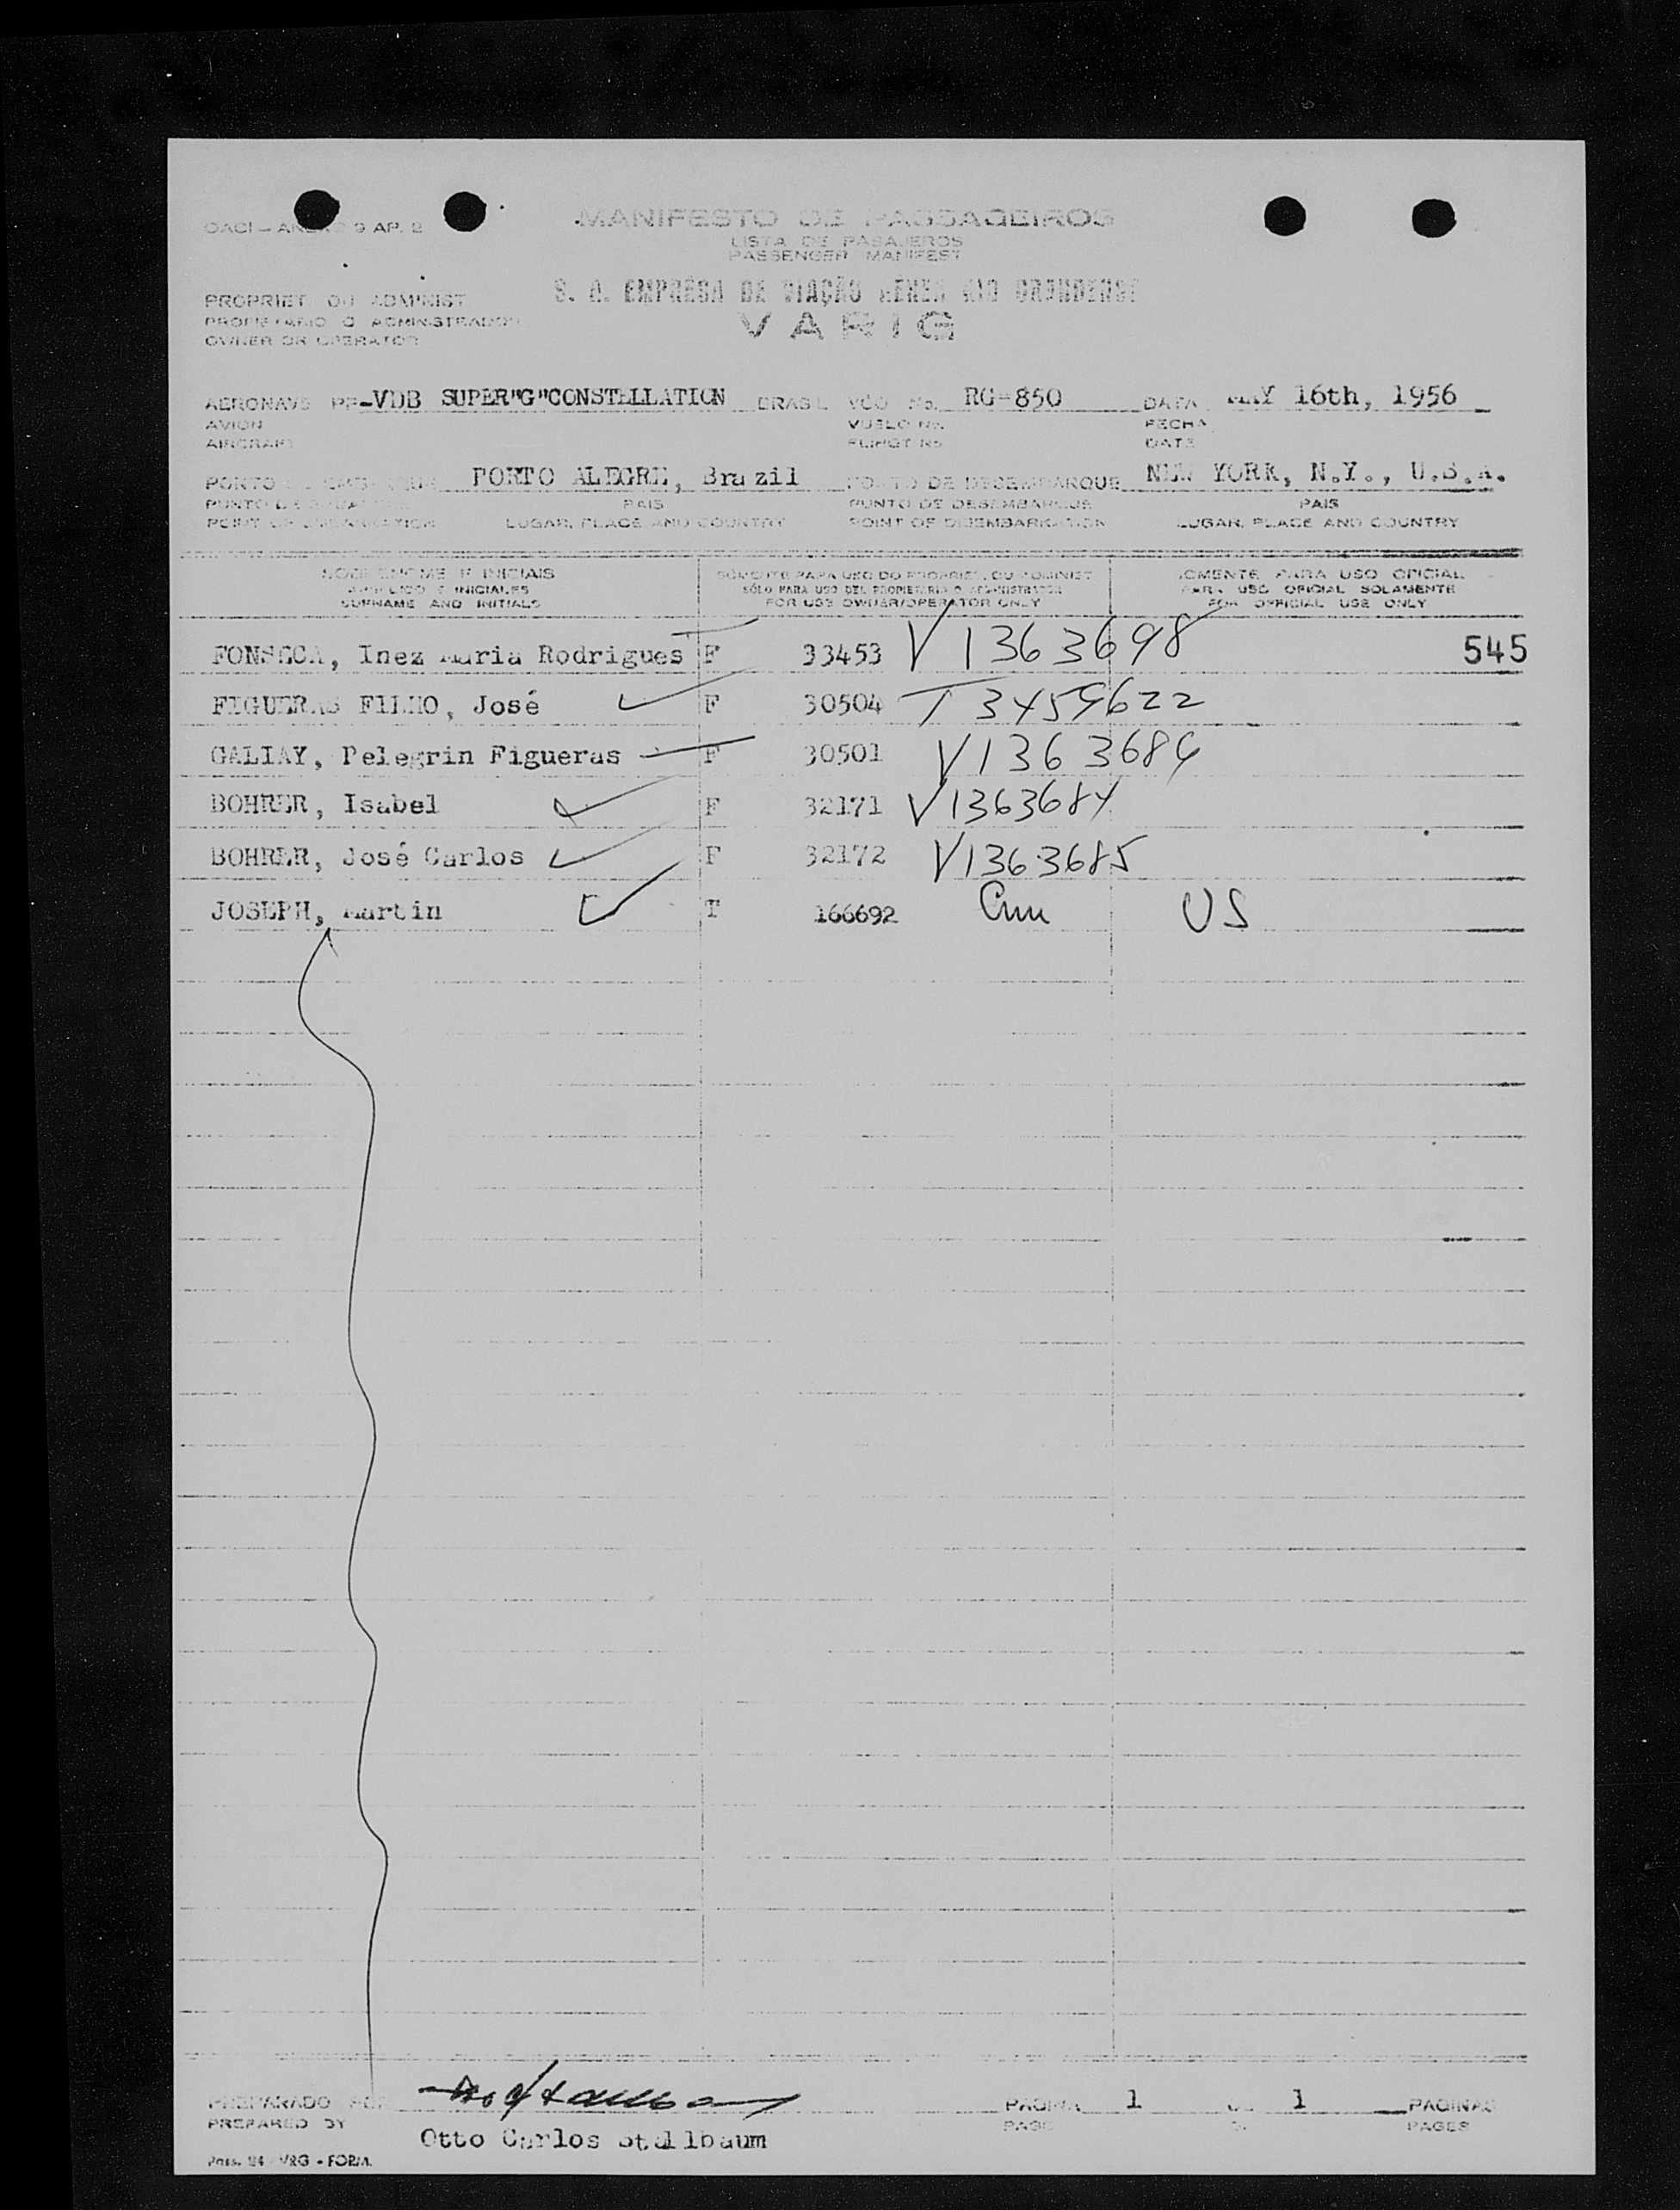 OACI - ANEXO 9 AP. 2
MANIFESTO DE PASSAGEIROS
LISTA DE PASAJEROS
PASSENGER MANIFEST
S. A. EMPRÊSA DE VIAÇÃO AÉREA RIO GRANDENSE
VARIG
PROPRIET. OU ADMINIST.
PROPIETARIO O ADMINISTRADOR
OWNER OR OPERATOR
AERONAVE PP-VDB SUPER"G"CONSTELLATION BRASIL VÔO No. RG-850 DATA MAY 16th, 1956
AVION VUELO No. FECHA
AIRCRAFT FLIHGT No. DATE
PORTO DE EMBARQUE PORTO ALEGRE, Brazil PORTO DE DESEMBARQUE NEW YORK, N.Y., U.S.A.
PUNTO DE PAIS PUNTO DE DESEMBARQUE PAIS
POINT OF EMBARKATION LUGAR, PLACE AND COUNTRY POINT OF DISEMBARKATION LUGAR, PLACE AND COUNTRY
SOBRENOME E INICIAIS SÓMENTE PARA USO DO PROPRIET. OU ADMINIST. SOMENTE PARA USO OFICIAL
APELLIDO E INICIALES SÓLO PARA USO DEL PROPIETARIO O ADMINISTRADOR PARA USO OFICIAL SOLAMENTE
SURNAME AND INITIALS FOR USE OWNER/OPERATOR ONLY FOR OFFICIAL USE ONLY
FONSECA, Inez Maria Rodrigues F 33453 V1363698 545
FIGUERAS FILHO, José F 30504 T 3459622
GALIAY, Pelegrin Figueras F 30501 V1363686
BOHRER, Isabel F 32171 V1363684
BOHRER, José Carlos F 32172 V1363685
JOSEPH, Martin T 166692 US
PREPARADO POR PAGINA 1 DE 1 PAGINAS
PREPARED BY Otto Carlos Stallbaum PAGE PAGES
Pass. 24 - VRG - FORM.